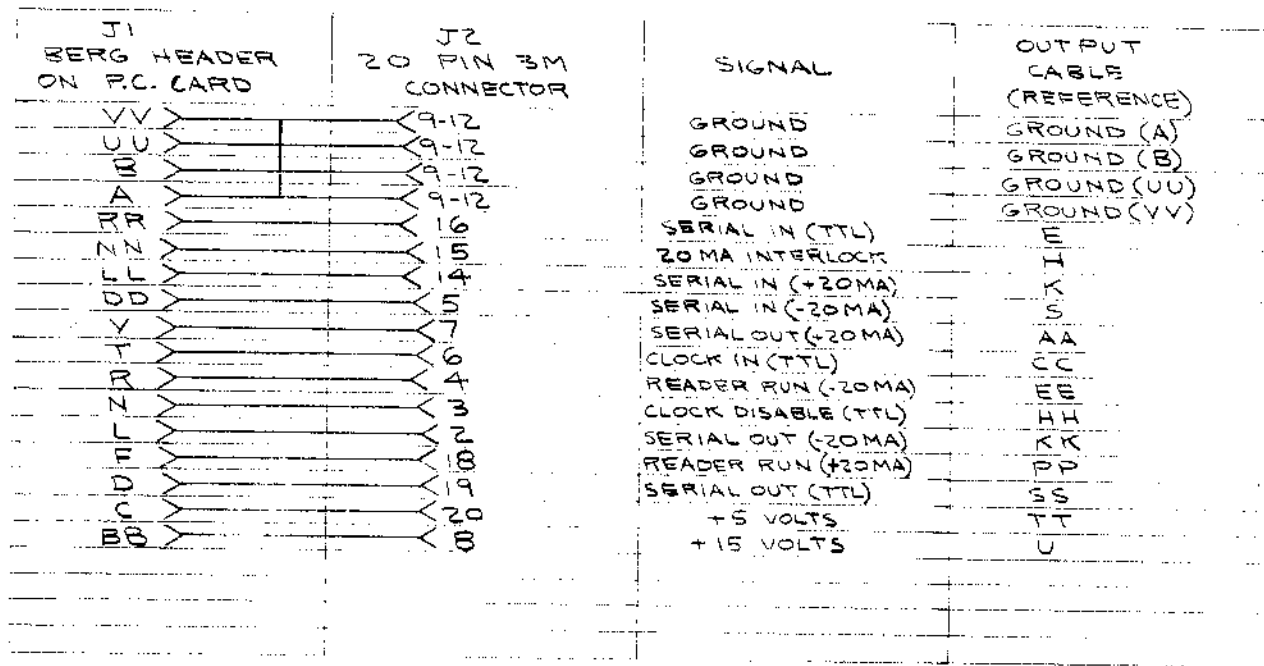 J1 BERG HEADER ON P.C. CARD J2 20 PIN 3M CONNECTOR SIGNAL OUTPUT CABLE (REFERENCE)
VV 9-12 GROUND GROUND (A)
UU 9-12 GROUND GROUND (B)
B 9-12 GROUND GROUND (UU)
A 9-12 GROUND GROUND (VV)
RR 16 SERIAL IN (TTL) E
NN 15 20 MA INTERLOCK H
LL 14 SERIAL IN (+20MA) K
DD 5 SERIAL IN (-20MA) S
Y 7 SERIAL OUT (+20MA) AA
T 6 CLOCK IN (TTL) CC
R 4 READER RUN (-20MA) EE
N 3 CLOCK DISABLE (TTL) HH
L 2 SERIAL OUT (-20MA) KK
F 18 READER RUN (+20MA) PP
D 19 SERIAL OUT (TTL) SS
C 20 +5 VOLTS TT
BB 8 +15 VOLTS U